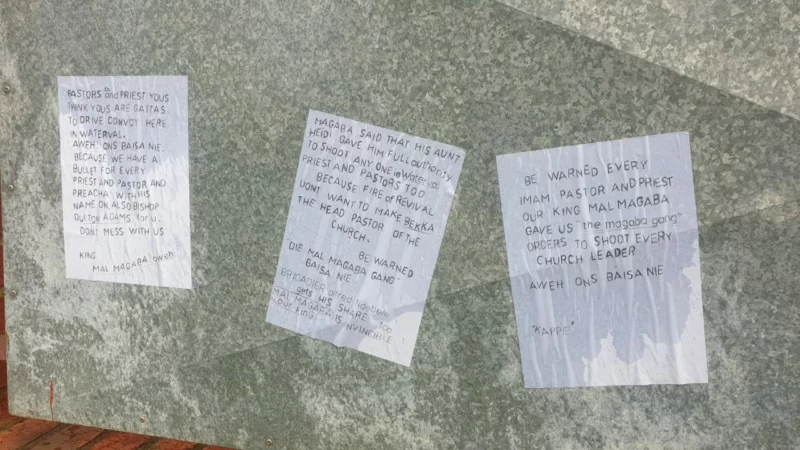 PASTORS to and PRIEST YOUS
THINK YOUS ARE GATTAS
TO DRIVE CONVOY HERE
IN WATERVAL.
AWEH ONS BAISA NIE.
BECAUSE WE HAVE A
BULLET FOR EVERY
PRIEST AND PASTOR AND
PREACHA WITH HIS
NAME ON. ALSO BISHOP
DULTON ADAMS for u.
DONT MESS WITH US
KING
MAL MAGABA aweh
MAGABA SAID THAT HIS AUNT
HEIDI GAVE HIM FULL authority
TO SHOOT ANY ONE in Waterval
PRIEST AND PASTORS TOO
BECAUSE FIRE of REVIVAL
DONT WANT TO MAKE BEKKA
THE HEAD PASTOR OF THE
CHURCH.
BE WARNED
DIE MAL MAGABA GANG"
BAISA NIE
BRIGADIER alfred
gets HIS SHARE too
MAL MAGABA IS INVINCIBLE
OUR KING
BE WARNED EVERY
IMAM PASTOR AND PRIEST
OUR KING MAL MAGABA
GAVE US "the magaba gang"
ORDERS TO SHOOT EVERY
CHURCH LEADER
AWEH ONS BAISA NIE
"KAPPIE"